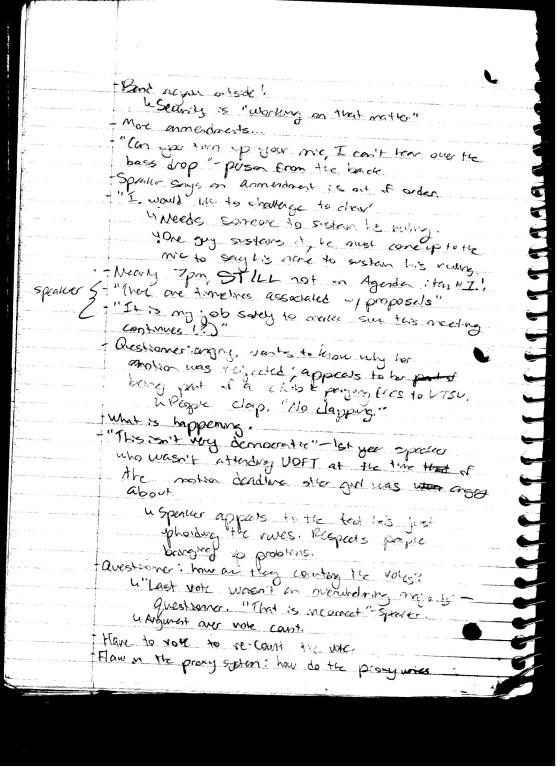 - Band again outside!
↳ Security is "working on that matter"
- More ammendments...
- "Can you turn up your mic, I can't hear over the
bass drop" - person from the back.
- Speaker says an ammendment is out of order.
- "I would like to challenge to chair"
↳ Needs someone to sustain his ruling.
↳ One guy sustains it, he must come up to the
mic to say his name to sustain his ruling.
- Nearly 7pm, STILL not on Agenda item #1!
speaker { - "There are timelines associated w/ proposals"
- "It is my job solely to make sure this meeting
continues (?)"
- Questioner: angry, wants to know why her
motion was rejected; appeals to her part of
being part of a club & paying fees to UTSU.
↳ People clap. "No clapping."
- What is happening.
- "This isn't very democratic" - 1st year speaker
who wasn't attending UOFT at the time that of
the motion deadline other girl was angry
about.
↳ Speaker appeals to the fact he's just
upholding the rules. Respects people
bringing up problems.
- Questioner: how are they counting the votes?
↳ "Last vote wasn't an overwhelming majority" -
Questionner. "That is incorrect" - Speaker.
↳ Argument over vote count.
- Have to vote to re-count the vote.
- Flaw in the proxy system: how do the proxy